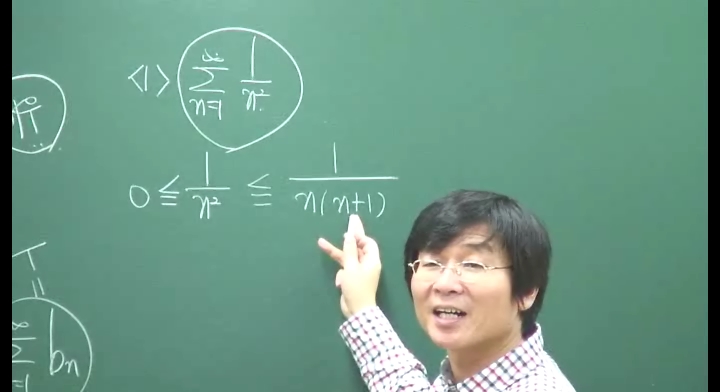 <1> ∑_{n=1}^{∞} 1/n²
0 ≦ 1/n² ≦ 1/n(n+1)
∑ bₙ